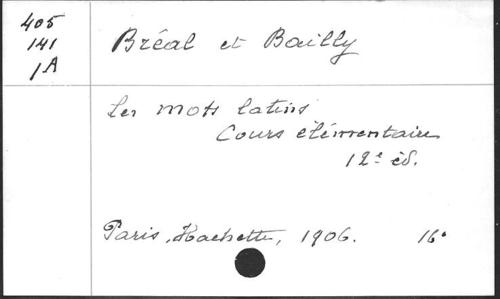 405
141
1A
Bréal et Bailly
Les mots latins
Cours élémentaire
12e éd.
Paris, Hachette, 1906. 16°